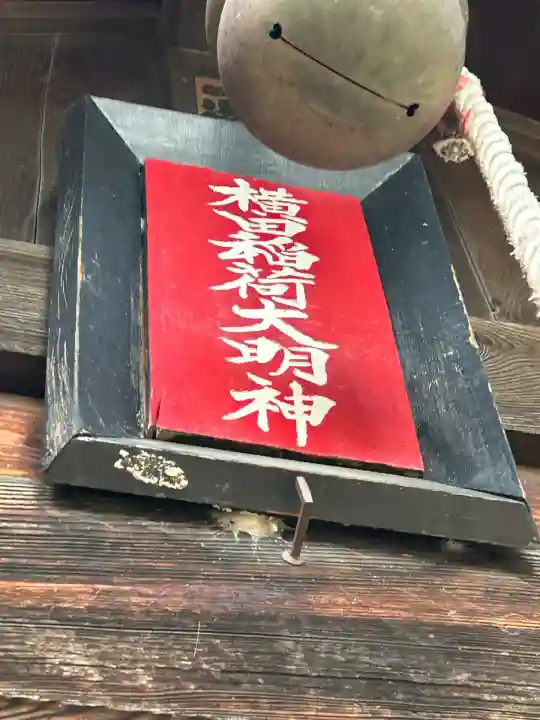 横田稲荷大明神